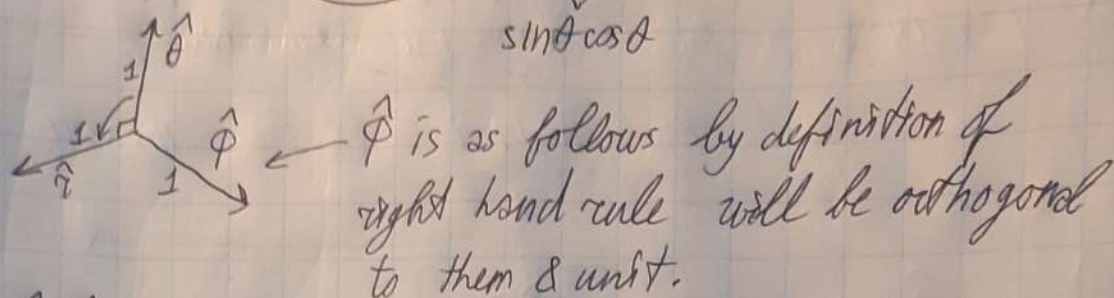 sinθcosθ
θ̂
1
1
r̂
1
φ̂
← φ̂ is as follows by definition of
right hand rule will be orthogonal
to them & unit.